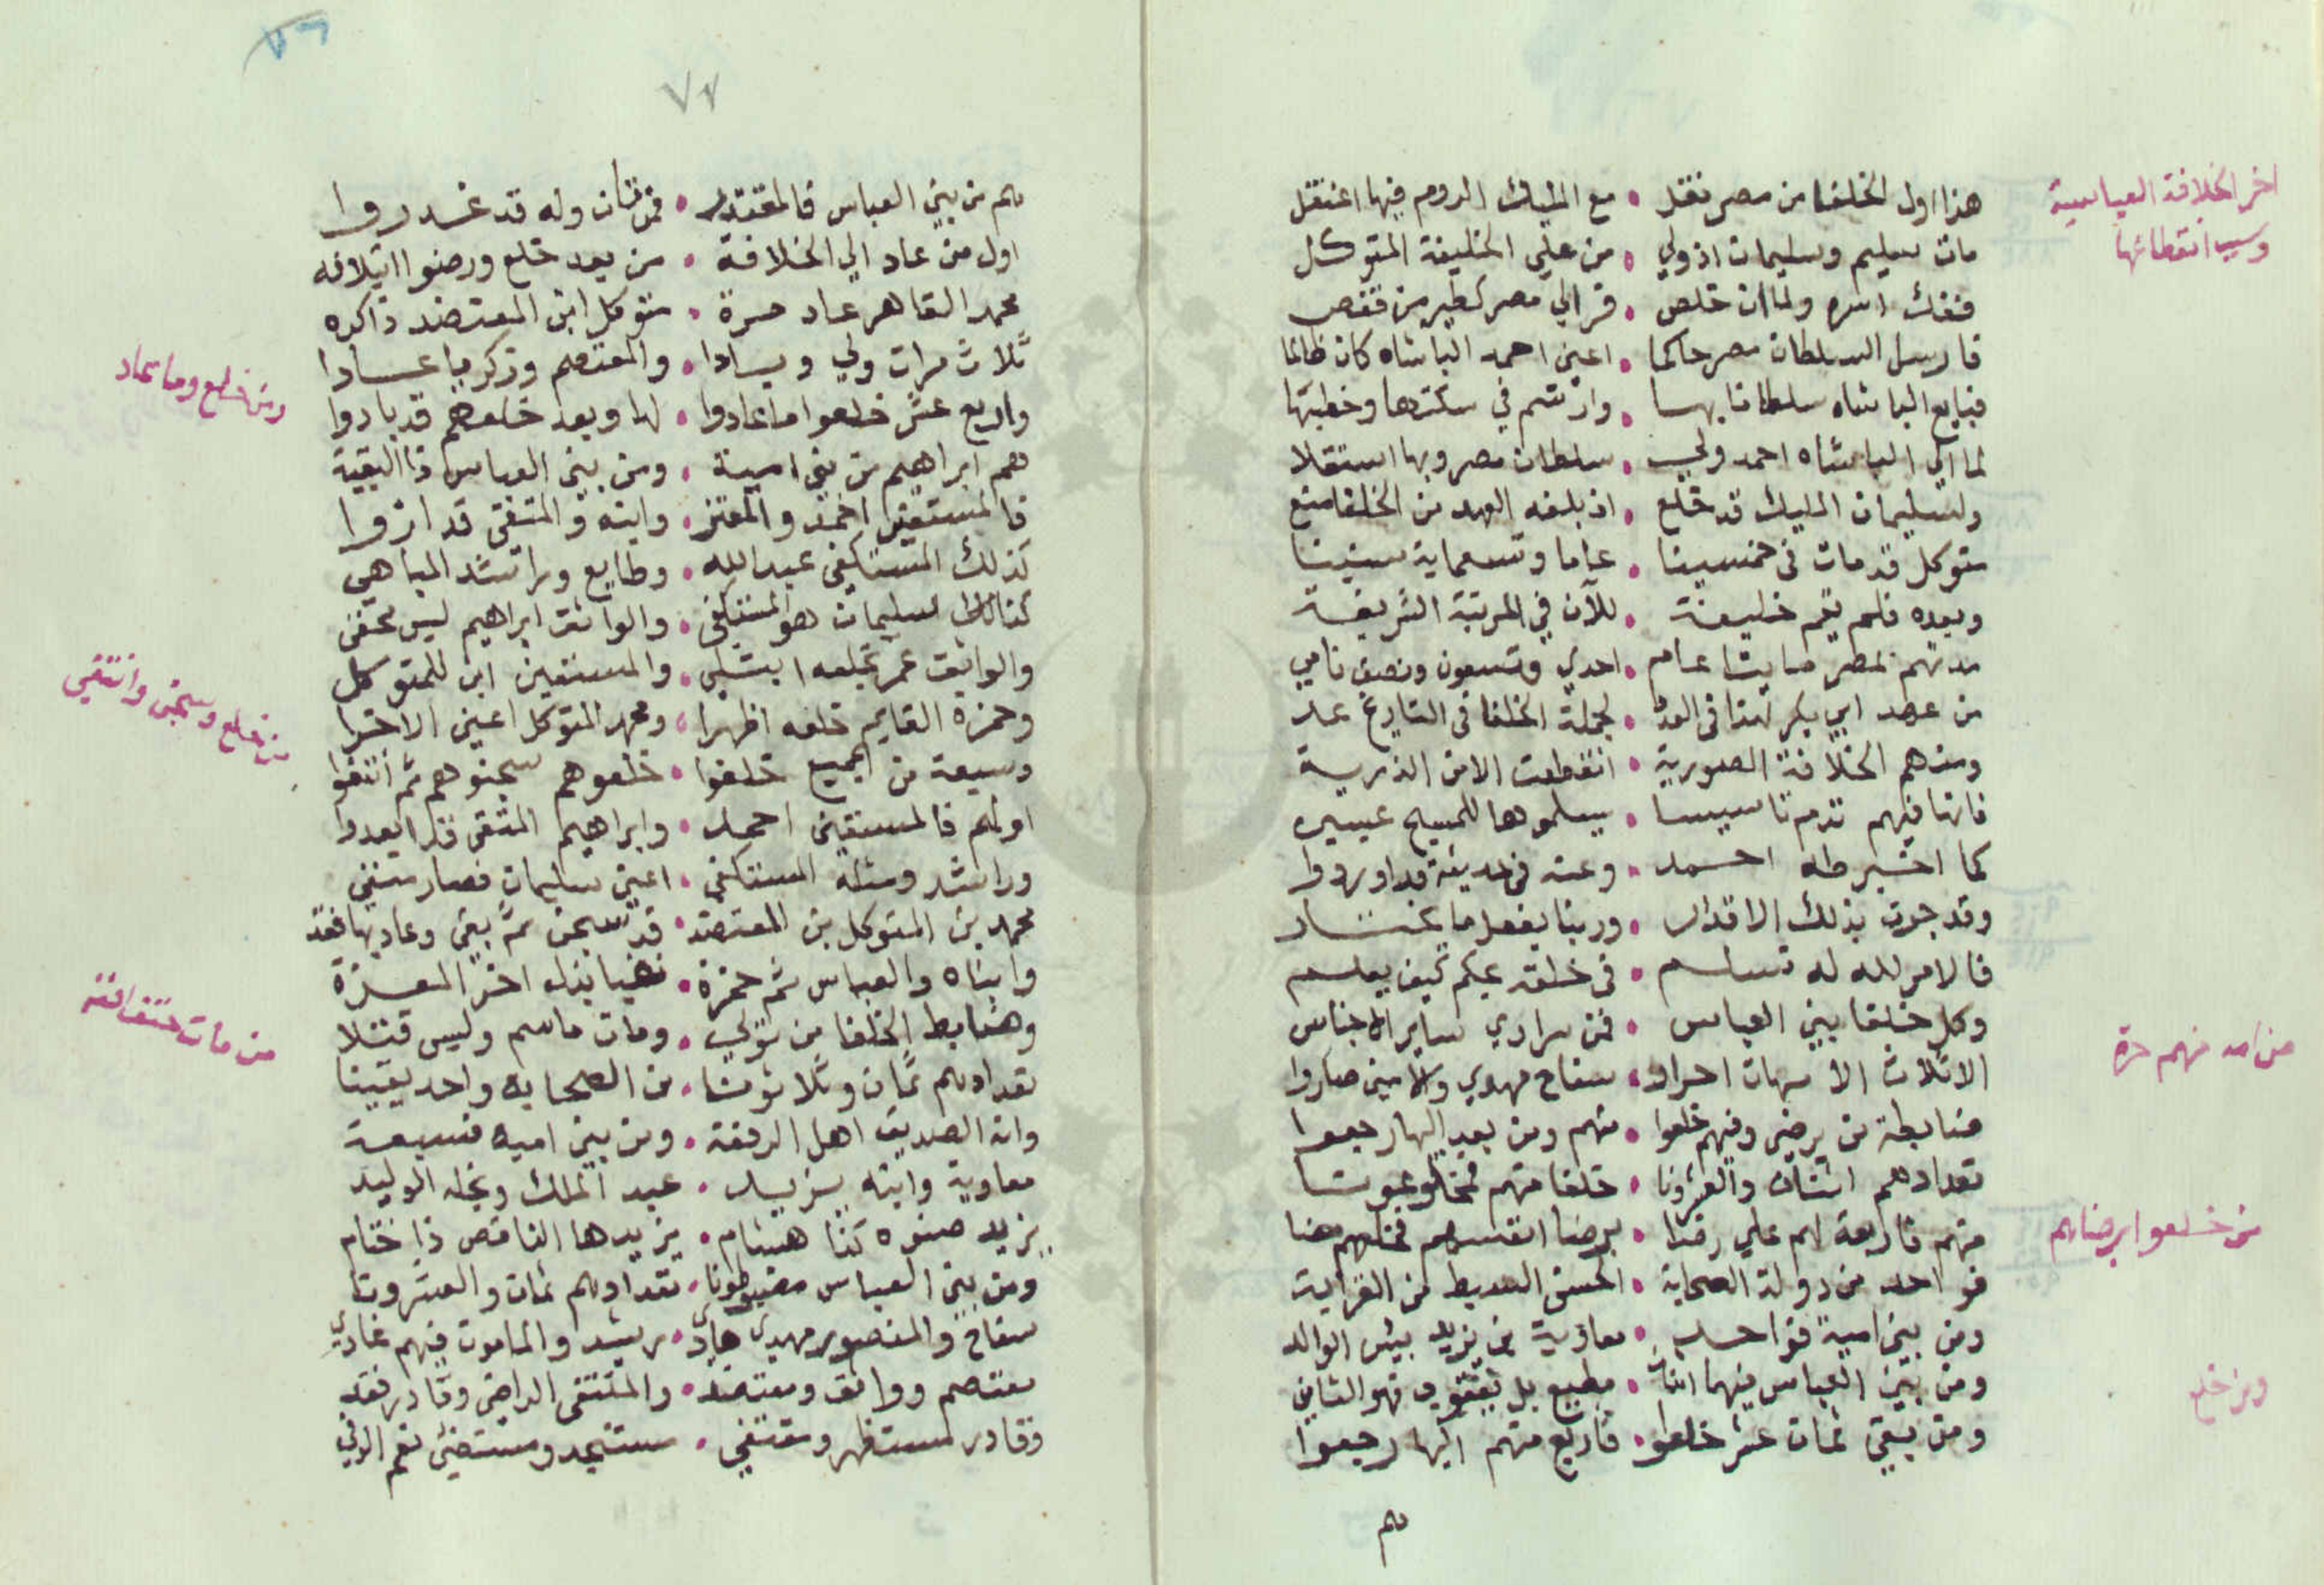 اخر الخلافة العباسية
وسبب انقطاعها
هذا اول الخلفا من مصر نقل • مع المليك الروم فيها اعتقل
مات سليم وسليمان اذ ولي • من علي الخليفة المتوكل
ففك اسره ولما ان خلص • فر الي مصر كطير من قفص
فارسل السلطان مصر حاكما • اعني احمد الباشاه كان ظالما
فبايع الباشاه سلطانا بها • وارتسم في سكتها وخطبتها
لما الي الباشاه احمد ولي • سلطان مصر وبها استقلا
ولسليمان المليك قد خلع • اذ بلغه العهد من الخلفا منع
متوكل قد مات في خمسينا • عاما وتسعماية سنينا
وبعده فلم يقم خليفة • للآن في المرتبة الشريفة
مدتهم بمصر مايتا عام • احدي وتسعون ونصف نامي
من عهد ابي بكر لهذا في العد • لجملة الخلفا في التاريخ عد
ومنهم الخلافة الصورية • انقطعت الا من الذرية
فانها فيهم تدم تاسيسا • يسلموها للمسيح عيسي
كما اخبر طه احمد • وعنه في حديثه قد اوردوا
وقد جرت بذلك الاقدار • وربنا يفعل ما يختار
فالامر لله له نسلم • في خلقه يحكم كيف يعلم
من امه منهم حرة
وكل خلفا بني العباس • فمن سراري ساير الاجناس
الا ثلاث الامهات احرار • سفاح مهدي والامين صاروا
ضابطة من يرضي وفيهم خلعوا • منهم ومن بعد اليها رجعوا
تعدادهم اثنان والعشرونا • خلفا منهم
من خلعوا برضاهم
منهم فاربعة لهم علي رضا • برضا انفسهم فخلعهم مضا
فواحد من دولة الصحابة • الحسن السبط من القرابة
ومن بني امية فواحد • معاوية بن يزيد بيس الوالد
ومن بني العباس منهما اثنان • مطيع بل فهو الثاني
ومن خلع
ومن بقي ثمان عشر خلعوا • فاربع منهم اليها رجعوا
هم
٧٧
هم من بني العباس فالمقتدر • فمرتان وله قد غدروا
اول من عاد الي الخلافة • من بعد خلع ورضوا ايتلافه
محمد القاهر عاد مرة • متوكل ابن المعتضد ذاكره
ثلاث مرات ولي وسادا • والمعتصم وزكريا عادا
ومن خلع وما عاد
واربع عشر خلعوا ما عادوا • لها وبعد خلعهم قد بادوا
هم ابراهيم من بني امية • ومن بني العباس ذا البقية
فالمستعين احمد والمعتز • وابنه والمتقي قد
كذلك المستكفي عبد الله • وطايع وراشد المباهي
كذلك سليمان هو المستكفي • والواثق ابراهيم ليس مخفي
والواثق عمر بخلعه ابتلي • والمستعين ابن للمتوكل
وحمزة القايم خلعه اظهرا • ومحمد المتوكل اعني الاخرا
من خلع وسجن وانتفي
وسبعة من الجميع خلعوا • خلعوهم سجنوهم ثم انتفوا
اولهم فالمستعين احمد • وابراهيم المتقي قد ابعدوا
وراشد ومثله المستكفي • اعني سليمان فصار منفي
محمد بن المتوكل بن المعتضد • قد سجن ثم بقي وعاد بها فقد
وابناه والعباس ثم حمزة • فهيا بذاء اخر المعزة
من مات حتف انفه
وضابط الخلفا من تولي • ومات ما سم وليس قتلا
تعدادهم ثمان وثلاثونا • من الصحابه واحد يقينا
وانه الصديق اهل الرفعة • ومن بني اميه فسبعة
معاوية وابنه يزيد • عبد الملك ونجله الوليد
يزيد صنوه كذا هشام • يزيدها الناقص ذا ختام
ومن بني العباس مضبوطونا • تعدادهم ثمان والعشرونا
سفاح والمنصور مهدي هادي • رشد والمامون فيهم غادي
معتصم وواثق ومعتضد • والمتقي الراضي وقادر فقد
وقادر مستظهر ومقتفي • مستنجد ومستضئ نعم الوفي